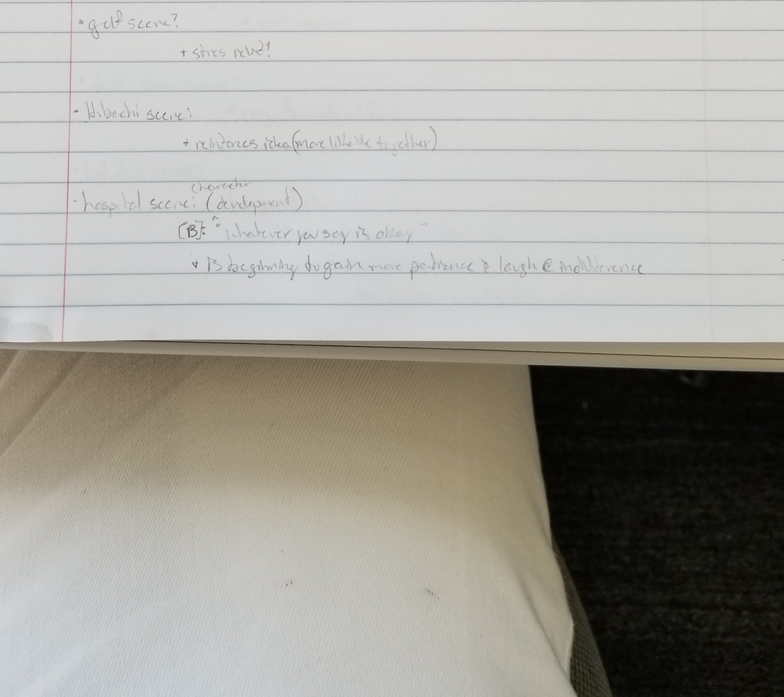 • golf scene?
+ stress relief?
- Hibachi scene:
+ reinforces idea (more likable together)
character
- hospital scene: (development)
[B]: "whatever you say is okay"
+ is beginning to gain more patience & laugh @ indifference